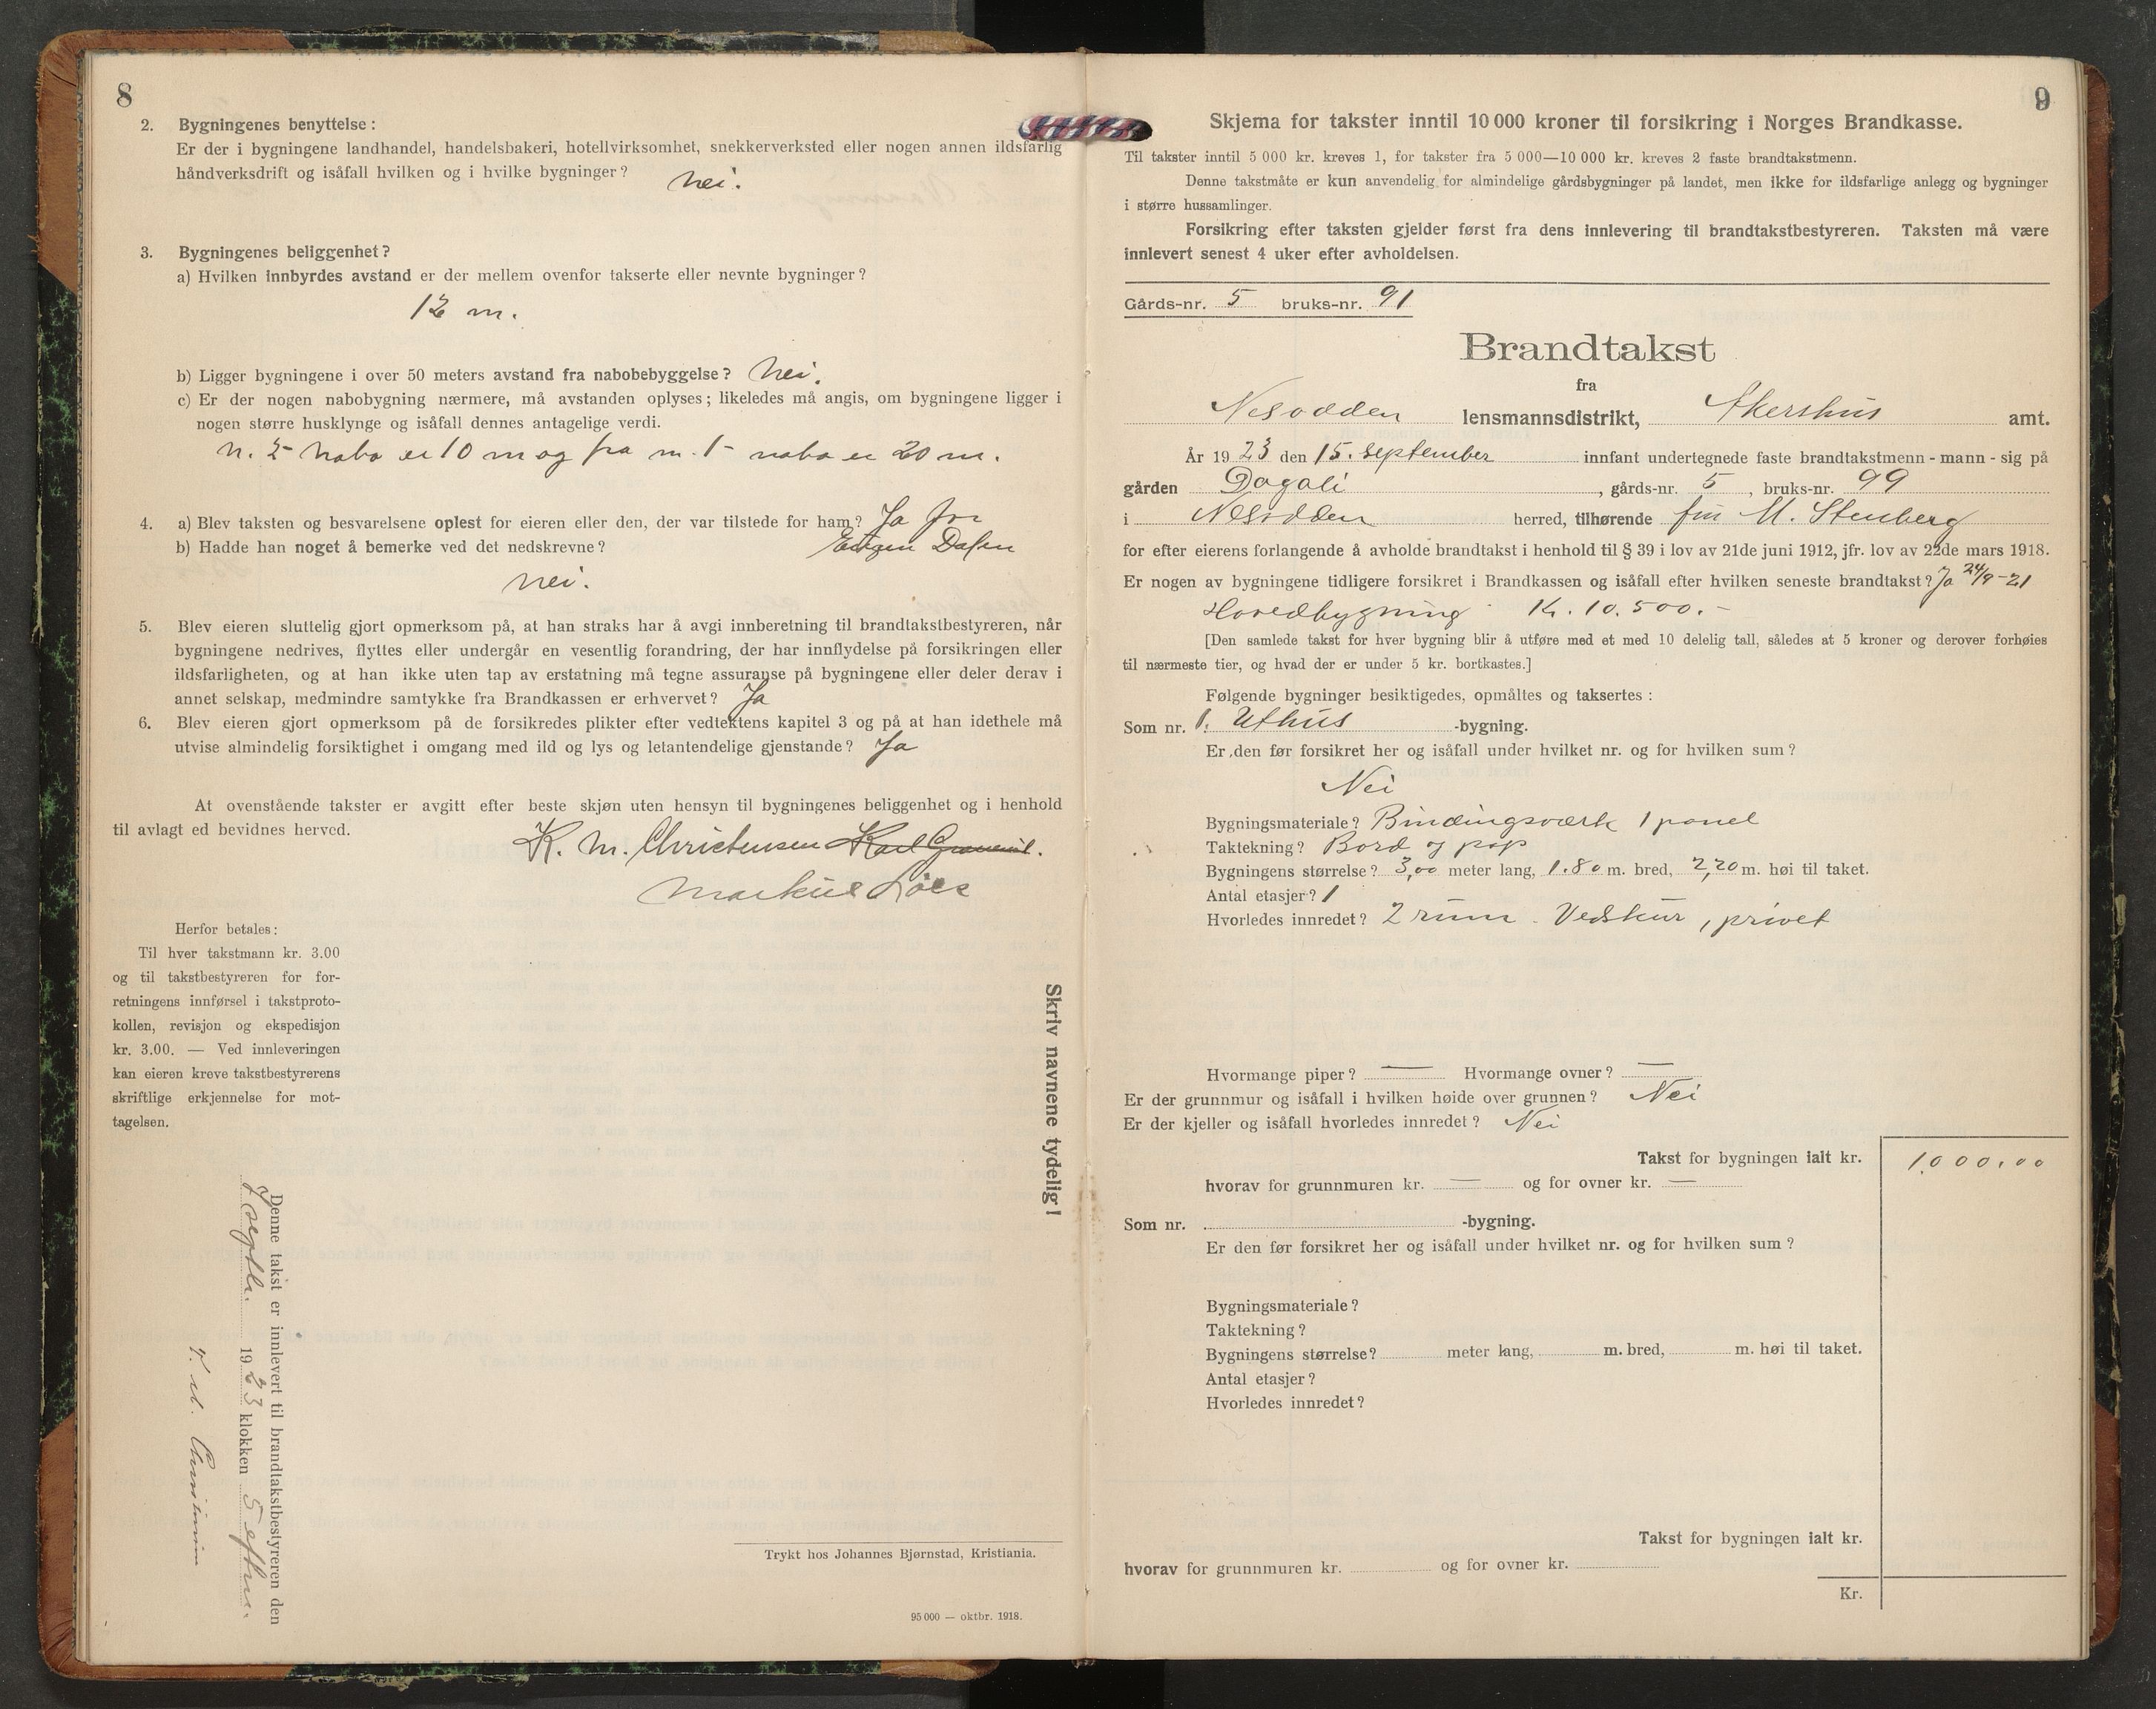 8
2. Bygningenes benyttelse:
Er der i bygningene landhandel, handelsbakeri, hotellvirksomhet, snekkerverksted eller nogen annen ildsfarlig
håndverksdrift og isåfall hvilken og i hvilke bygninger? Nei.
3. Bygningenes beliggenhet?
a) Hvilken innbyrdes avstand er der mellem ovenfor takserte eller nevnte bygninger?
12 m.
b) Ligger bygningene i over 50 meters avstand fra nabobebyggelse? Nei.
c) Er der nogen nabobygning nærmere, må avstanden oplyses; likeledes må angis, om bygningene ligger i
nogen større husklynge og isåfall dennes antagelige verdi.
n. 2- nabo er 10 m og fra n. 1- nabo er 20 m.
4. a) Blev taksten og besvarelsene oplest for eieren eller den, der var tilstede for ham? Ja for
b) Hadde han noget å bemerke ved det nedskrevne?
nei.
5. Blev eieren sluttelig gjort opmerksom på, at han straks har å avgi innberetning til brandtakstbestyreren, når
bygningene nedrives, flyttes eller undergår en vesentlig forandring, der har innflydelse på forsikringen eller
ildsfarligheten, og at han ikke uten tap av erstatning må tegne assuranse på bygningene eller deler derav i
annet selskap, medmindre samtykke fra Brandkassen er erhvervet? Ja
6. Blev eieren gjort opmerksom på de forsikredes plikter efter vedtektens kapitel 3 og på at han idethele må
utvise almindelig forsiktighet i omgang med ild og lys og letantendelige gjenstande? Ja
At ovenstående takster er avgitt efter beste skjøn uten hensyn til bygningenes beliggenhet og i henhold
til avlagt ed bevidnes herved.
K. M. Christensen
Markus
Herfor betales:
Til hver takstmann kr. 3.00
og til takstbestyreren for for-
retningens innførsel i takstproto-
kollen, revisjon og ekspedisjon
kr. 3.00. — Ved innleveringen
kan eieren kreve takstbestyrerens
skriftlige erkjennelse for mot-
tagelsen.
Skriv navnene tydelig!
Denne takst er innlevert til brandtakstbestyreren den
7 septbr. 1923 klokken 5 eftm.
Trykt hos Johannes Bjørnstad, Kristiania.
95 000 — oktbr. 1918.
9
Skjema for takster inntil 10 000 kroner til forsikring i Norges Brandkasse.
Til takster inntil 5 000 kr. kreves 1, for takster fra 5 000—10 000 kr. kreves 2 faste brandtakstmenn.
Denne takstmåte er kun anvendelig for almindelige gårdsbygninger på landet, men ikke for ildsfarlige anlegg og bygninger
i større hussamlinger.
Forsikring efter taksten gjelder først fra dens innlevering til brandtakstbestyreren. Taksten må være
innlevert senest 4 uker efter avholdelsen.
Gårds-nr. 5 bruks-nr. 91
Brandtakst
fra
Nesodden lensmannsdistrikt, Akershus amt.
År 1923 den 15. september innfant undertegnede faste brandtakstmenn - mann - sig på
gården Dagali, gårds-nr. 5, bruks-nr. 99
i Nesodden herred, tilhørende fru M. Stenberg
for efter eierens forlangende å avholde brandtakst i henhold til § 39 i lov av 21de juni 1912, jfr. lov av 22de mars 1918.
Er nogen av bygningene tidligere forsikret i Brandkassen og isåfall efter hvilken seneste brandtakst? Ja 24/9-21
Hovedbygning Kr. 10.500.-
[Den samlede takst for hver bygning blir å utføre med et med 10 delelig tall, således at 5 kroner og derover forhøies
til nærmeste tier, og hvad der er under 5 kr. bortkastes.]
Følgende bygninger besiktigedes, opmåltes og taksertes:
Som nr. 1. Uthus -bygning.
Er den før forsikret her og isåfall under hvilket nr. og for hvilken sum?
Nei
Bygningsmateriale? Bindingsværk 1 panel
Taktekning? Bord og pap
Bygningens størrelse? 3,00 meter lang, 1.80 m. bred, 2,20 m. høi til taket.
Antal etasjer? 1
Hvorledes innredet? 2 rum. Vedskur, privet
Hvormange piper? — Hvormange ovner? —
Er der grunnmur og isåfall i hvilken høide over grunnen? Nei
Er der kjeller og isåfall hvorledes innredet? Nei
Takst for bygningen ialt kr. 1.000.00
hvorav for grunnmuren kr. — og for ovner kr. —
Som nr. -bygning.
Er den før forsikret her og isåfall under hvilket nr. og for hvilken sum?
Bygningsmateriale?
Taktekning?
Bygningens størrelse? meter lang, m. bred, m. høi til taket.
Antal etasjer?
Hvorledes innredet?
Takst for bygningen ialt kr.
hvorav for grunnmuren kr. og for ovner kr.
Kr.